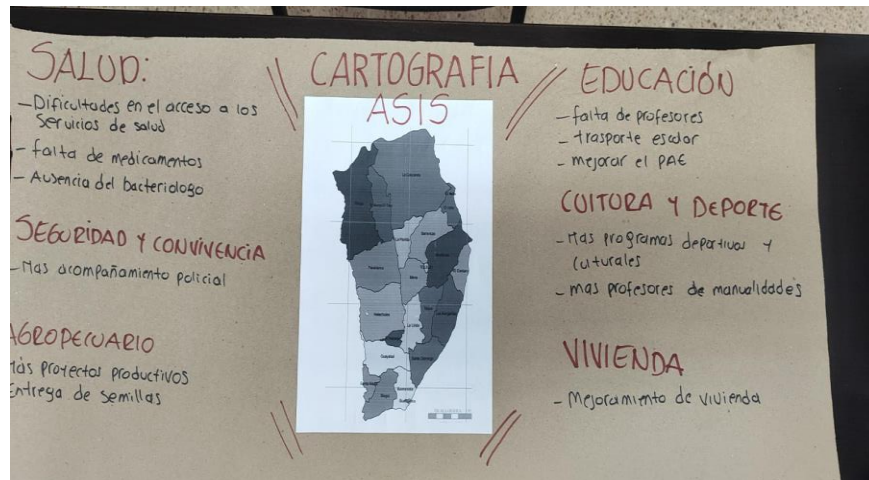 SALUD:
- Dificultades en el acceso a los
Servicios de salud
- falta de medicamentos
- Ausencia del bacteriologo
SEGURIDAD Y CONVIVENCIA
- Mas acompañamiento policial
AGROPECUARIO
Más proyectos productivos
Entrega de semillas
CARTOGRAFIA
ASIS
EDUCACIÓN
- falta de profesores
- trasporte escolar
- mejorar el PAE
CULTURA Y DEPORTE
- Mas programas deportivos y
culturales
- mas profesores de manualidades
VIVIENDA
- Mejoramiento de vivienda